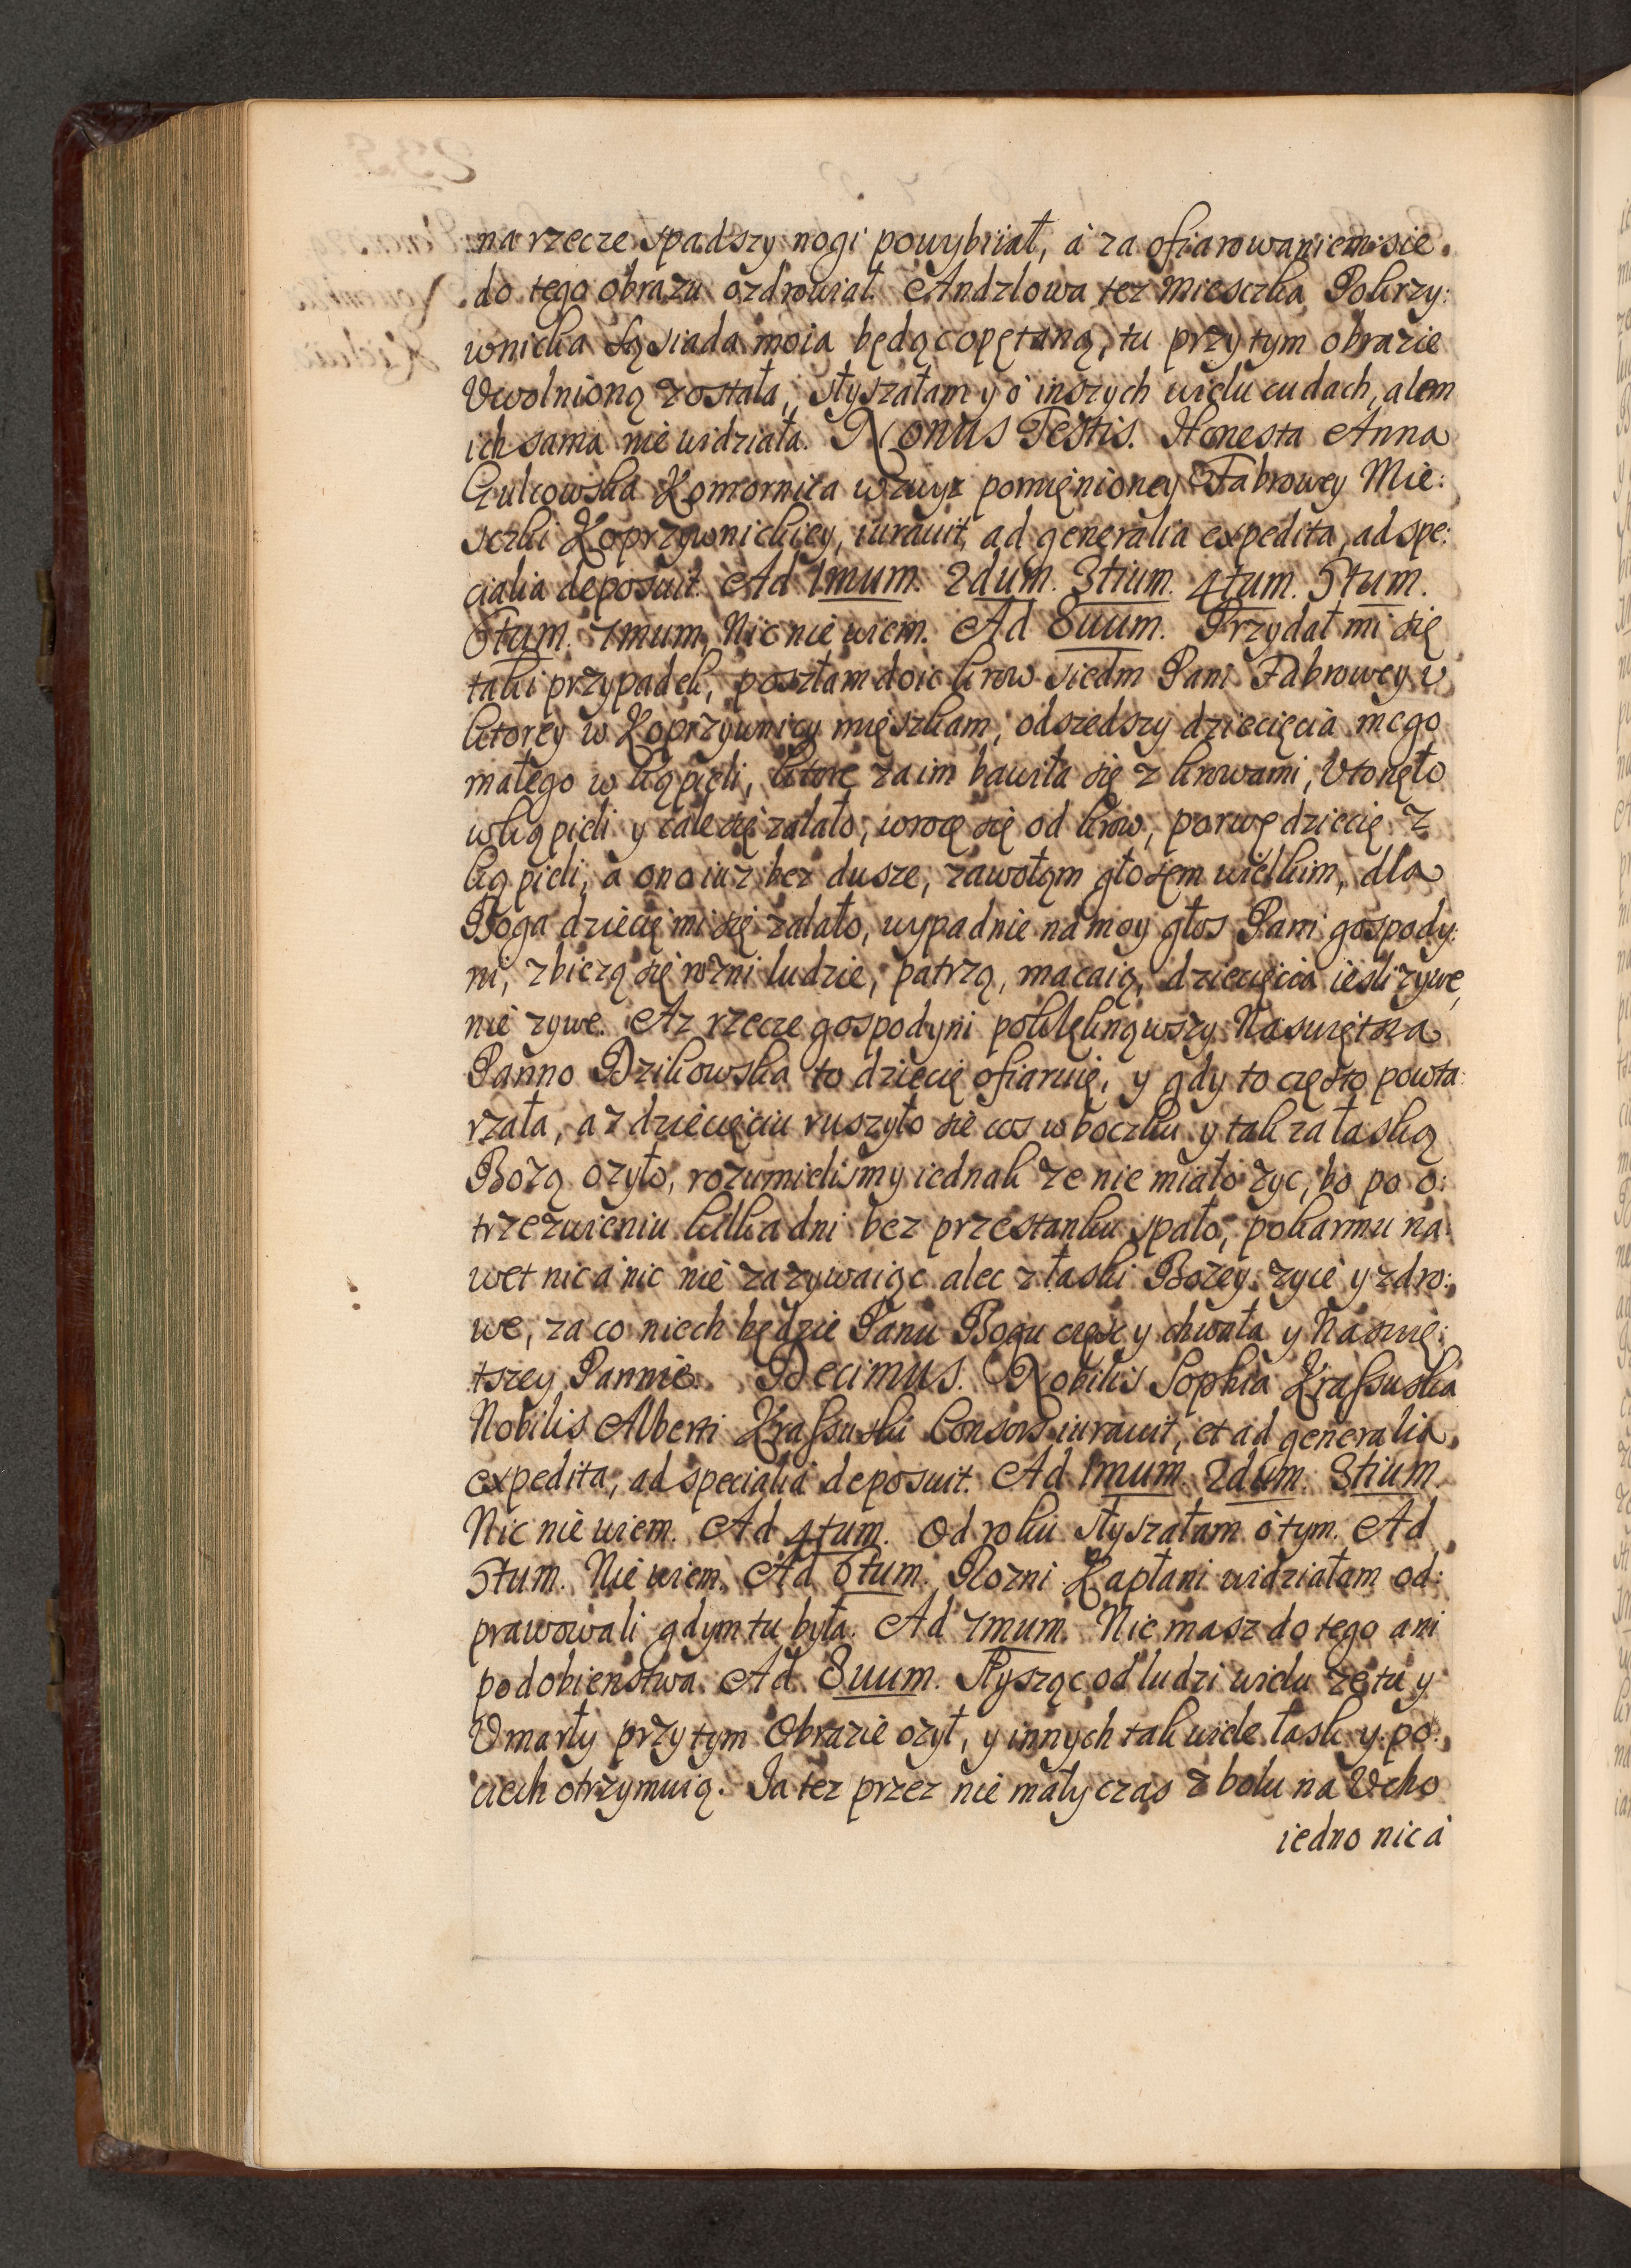 na rzecze spadszy nogi powybiiał, á za ofiarowaniem sie
do tego obrazu ozdrowiał. Andzlowa tez miesczka Pokrzy:
wnicka Sąsiada moia będąc opętaną, tu przy tym obrazie
Vwolnioną została, słyszałam y o inszych wielu cudach, alem
ich sama nie widziała. Nonus Testis. Honesta Anna
Gulcowska Komornica wzwyz pomięnioney Fabrowey Mie:
sczki Koprzywnickiey, iurauit, ad generalia expedita, ad spe:
cialia deposuit. Ad 1mum. 2dum. 3tium. 4tum. 5tum.
6tum. 7mum, Nic nie wiem. Ad 8uum. Przydał mi się
taki przypadek, poszłam doic krow siedm Pani Fabrowey v
ktorey w Koprzywnicy mięszkam, odszedszy dziecięcia mego
małego w kąpieli, ktore zaim bawiła się z krowami, Vtonęło
w kąpieli y cale się zalało, wrocę się od krow, porwę dziecię z
kąpieli, a ono iuz bez dusze, zawołąm głosem wielkim, dla
Boga dziecię mi się zalało, wypadnie na moy głos Pani gospody:
ni, zbierą się rozni ludzie, patrzą, macaią, dziecięcia iesli zywe,
nie zywe. Az rzecze gospodyni poklęknąwszy Naswiętsza
Panno Dzikowska to dziecię ofiaruię, y gdy to często powta:
rzała, az dziecięciu ruszyło sie cos w boczku y tak za łaską
Bożą ozyło, rozumielismy iednak ze nie miało zyc, bo po o:
trzezwieniu kilka dni bez przestanku spało, pokarmu na:
wet nic a nic nie zazywaiąc alec z łaski Bozey zyie y zdro:
we, za co niech będzie Panu Bogu częsc y chwała y Naswię:
tszey Pannie. Decimus. Nobilis Sophia Krassuska
Nobilis Alberti Krassuski Consors iurauit, et ad generalia
expedita, ad specialia deposuit. Ad 1mum. 2dum. 3tium.
Nic nie wiem. Ad 4tum. Od roku słyszałam o tym. Ad
5tum. Nie wiem. Ad 6tum. Rozni Kapłani widziałam od:
prawowali gdym tu była. Ad 7mum. Nic masz do tego ani
podobienstwa. Ad 8uum. Słysząc od ludzi wielu ze tu y
Vmarły przy tym Obrazie ozył, y innych tak wiele łask y po:
ciech otrzymuią. Ia tez przez nie mały czas z bolu na Vcho
iedno nic á